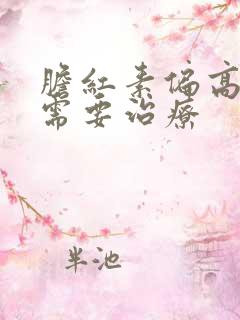 膽紅素偏高
需要治療
半池